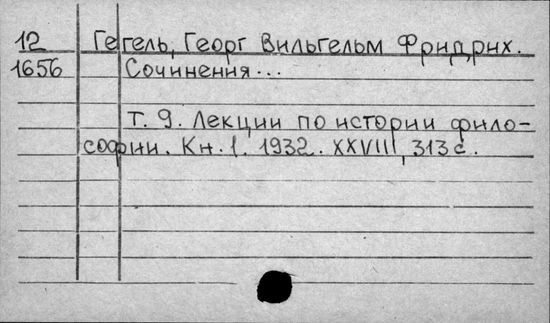 12 Гегель, Георг Вильгельм Фридрих.
1656 Сочинения...
Т. 9. Лекции по истории фило-
софии. Кн. 1. 1932. XXVIII, 313 с.